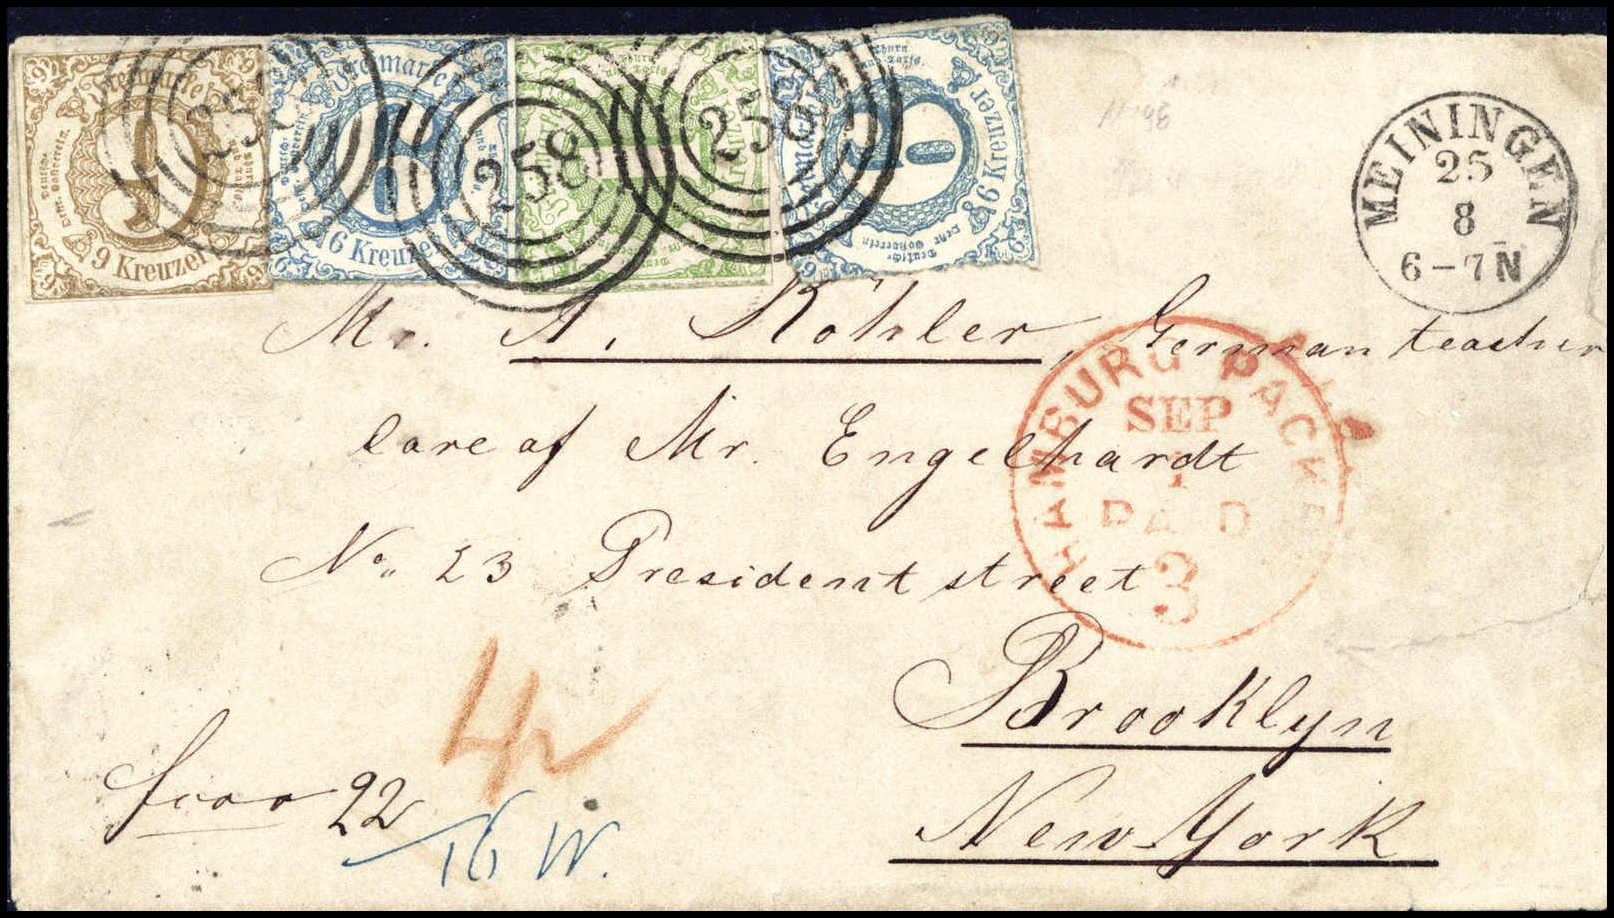 Freimarke
9 Kreuzer
Freimarke
6 Kreuzer
6 Kreuzer
258
258
258
MEININGEN
25
8
6-7N
Mr. A. Köhler, German teacher
Care of Mr. Engelhardt
No. 23 President street
Brooklyn
New-York
HAMBURG PACKET
SEP
PAID
3
franco 22
16 W.